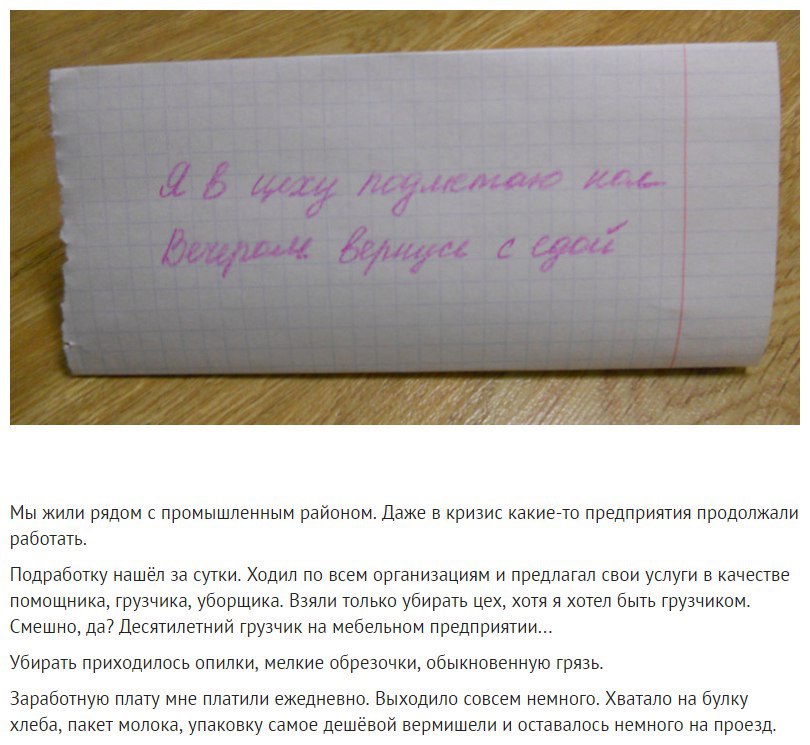 Я в цеху подметаю пол
Вечером вернусь с едой
Мы жили рядом с промышленным районом. Даже в кризис какие-то предприятия продолжали
работать.
Подработку нашёл за сутки. Ходил по всем организациям и предлагал свои услуги в качестве
помощника, грузчика, уборщика. Взяли только убирать цех, хотя я хотел быть грузчиком.
Смешно, да? Десятилетний грузчик на мебельном предприятии...
Убирать приходилось опилки, мелкие обрезочки, обыкновенную грязь.
Заработную плату мне платили ежедневно. Выходило совсем немного. Хватало на булку
хлеба, пакет молока, упаковку самое дешёвой вермишели и оставалось немного на проезд.